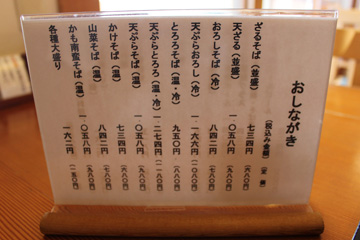 おしながき
（税込み金額）（定価）
ざるそば（並盛） 七三四円（七〇〇円）
天ざる（並盛） 一〇五八円
おろしそば（冷） 八四二円（八〇〇円）
天ぷらおろし（冷） 一一六六円
とろろそば（温・冷） 九五〇円
天ぷらとろろ（温・冷） 一二七四円
天ぷらそば（温） 一〇五八円
かけそば（温） 七三四円（七〇〇円）
山菜そば（温） 八四二円
かも南蛮そば（温） 一〇五八円
各種大盛り 一六二円（一五〇円）